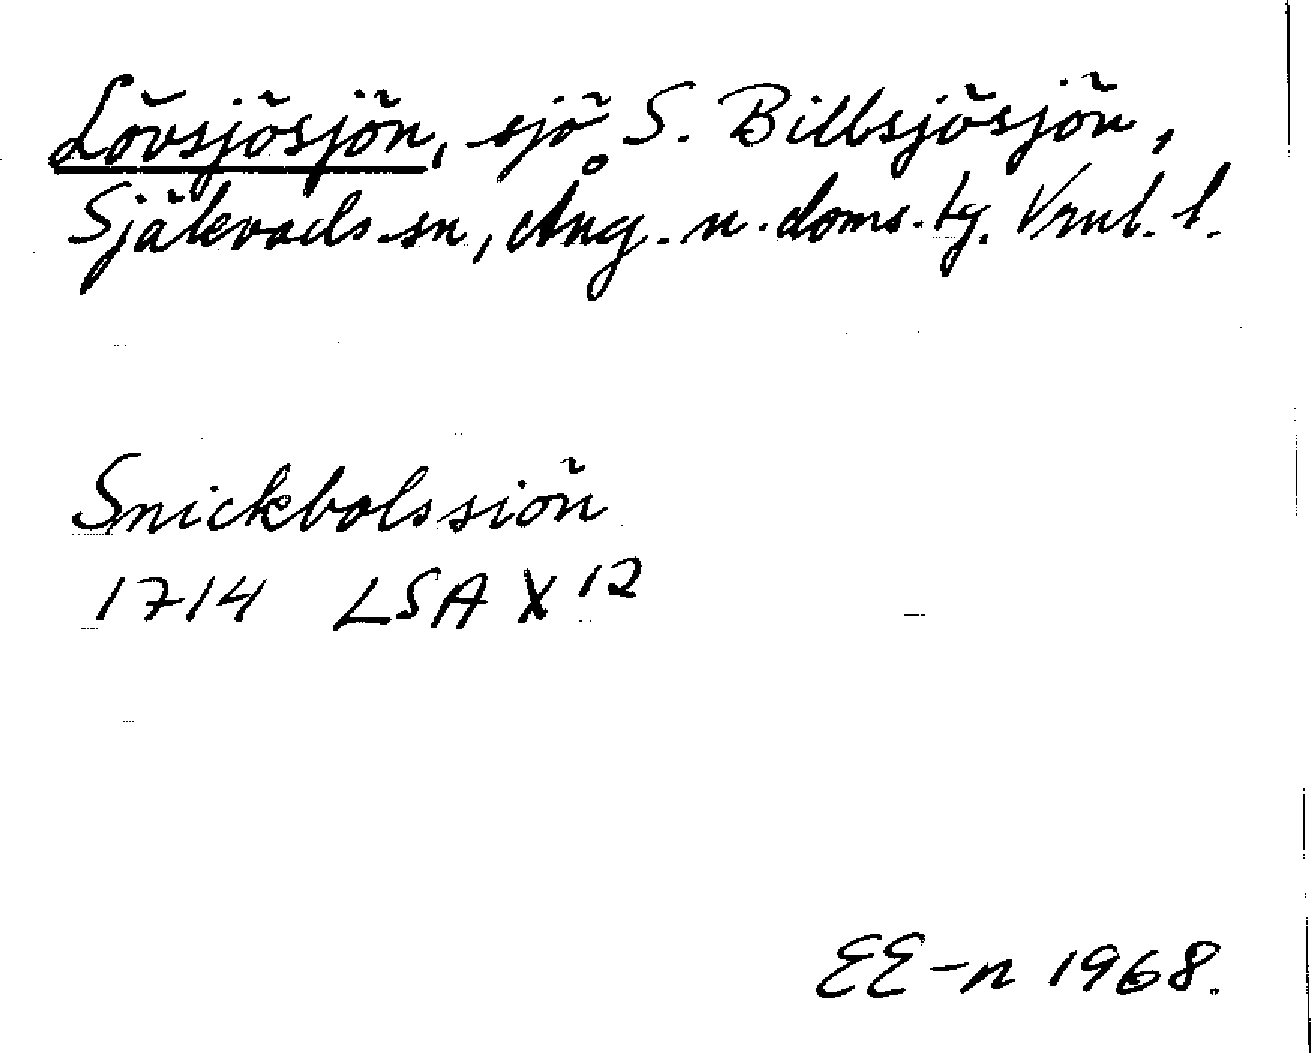 Lövsjösjön, sjö S. Billsjösjön,
Själevads sn, Ång. n. doms.-tg. Vrnl. l.
Snickbolssiön
1714 LSA X 12
EE-n 1968.